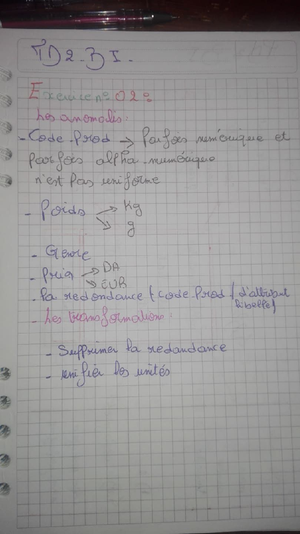 TD2.BI.
Exercice n° 02:
Les anomalis:
- Code.Prod → Parfoes numérique et
parfoes alpha-numérique
n'est pas uniforme
- Poids → Kg
→ g
- Genre
- Prix → DA
→ EUR
- la redondance (code.Prod / d'attribut
libellé)
- Les transformation:
- Supprimer la redandance
- unifier les unités